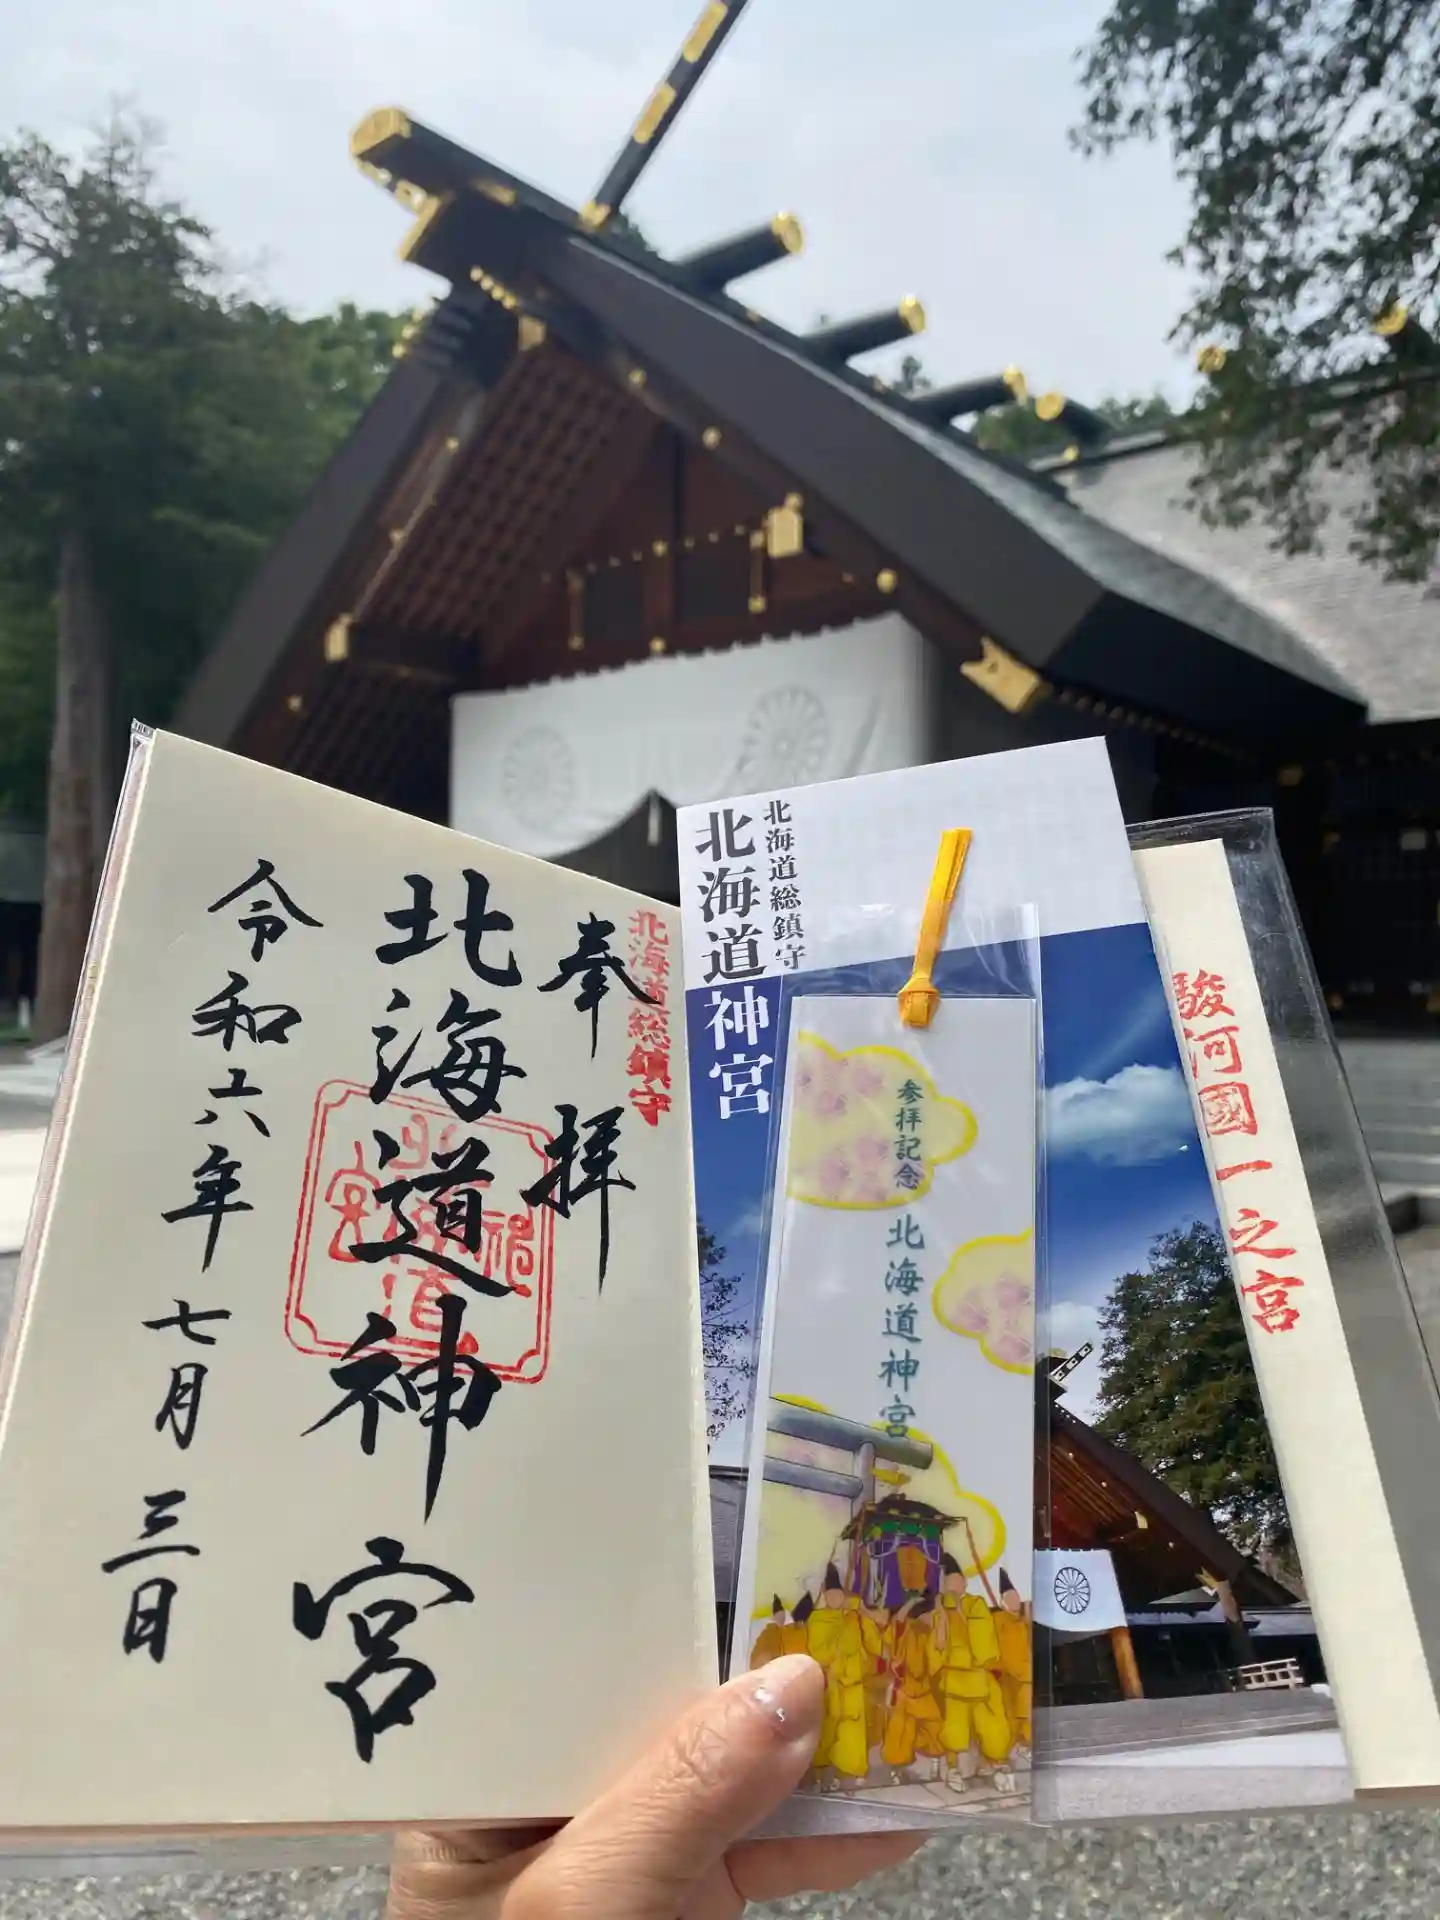 北海道総鎮守
奉拝
北海道神宮
令和六年七月三日
北海道総鎮守
北海道神宮
参拝記念
北海道神宮
駿河國一之宮